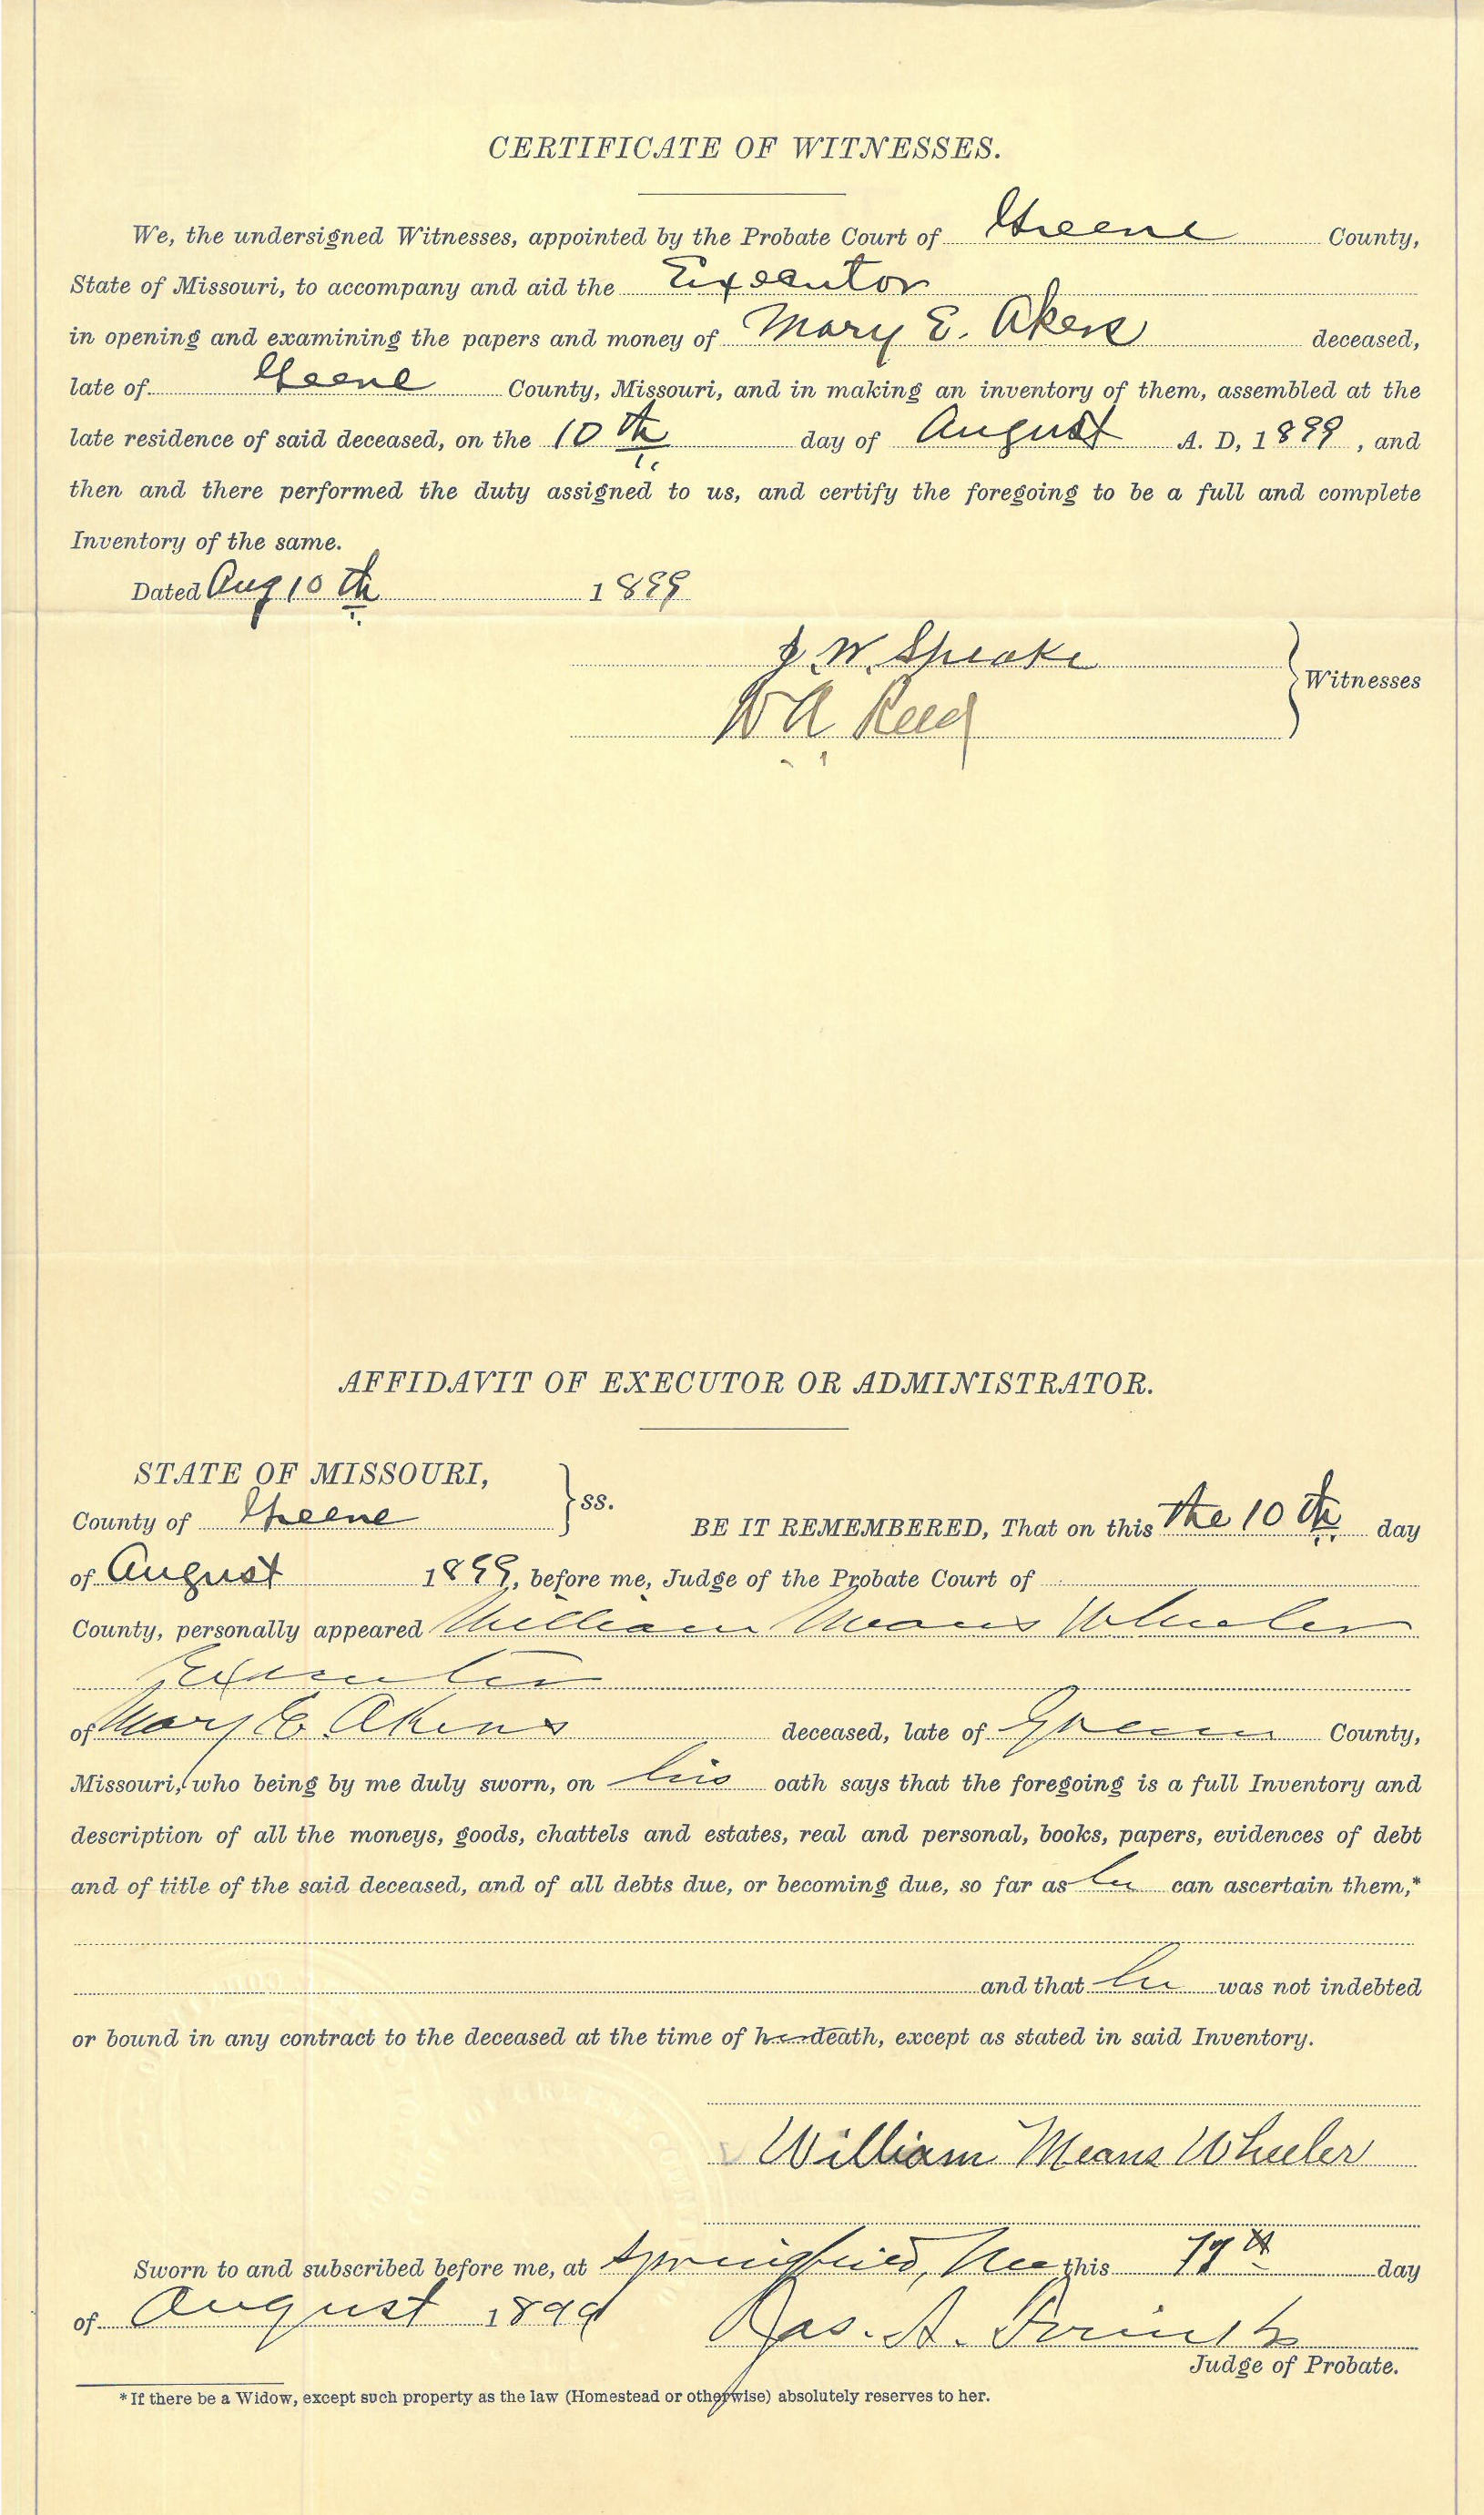 CERTIFICATE OF WITNESSES.
We, the undersigned Witnesses, appointed by the Probate Court of Greene County,
State of Missouri, to accompany and aid the Executor
in opening and examining the papers and money of Mary E. Akers deceased,
late of Greene County, Missouri, and in making an inventory of them, assembled at the
late residence of said deceased, on the 10th day of August A. D, 1899, and
then and there performed the duty assigned to us, and certify the foregoing to be a full and complete
Inventory of the same.
Dated Aug 10th 1899
J. W. Speake
W A Reed
Witnesses
AFFIDAVIT OF EXECUTOR OR ADMINISTRATOR.
STATE OF MISSOURI,
County of Greene ss. BE IT REMEMBERED, That on this the 10th day
of August 1899, before me, Judge of the Probate Court of
County, personally appeared William Means Wheeler
Executor
of Mary E Akers deceased, late of Greene County,
Missouri, who being by me duly sworn, on his oath says that the foregoing is a full Inventory and
description of all the moneys, goods, chattels and estates, real and personal, books, papers, evidences of debt
and of title of the said deceased, and of all debts due, or becoming due, so far as he can ascertain them,*
and that he was not indebted
or bound in any contract to the deceased at the time of her death, except as stated in said Inventory.
William Means Wheeler
Sworn to and subscribed before me, at Springfield, Mo this day
of August 1899 Jas. A.
Judge of Probate.
*If there be a Widow, except such property as the law (Homestead or otherwise) absolutely reserves to her.